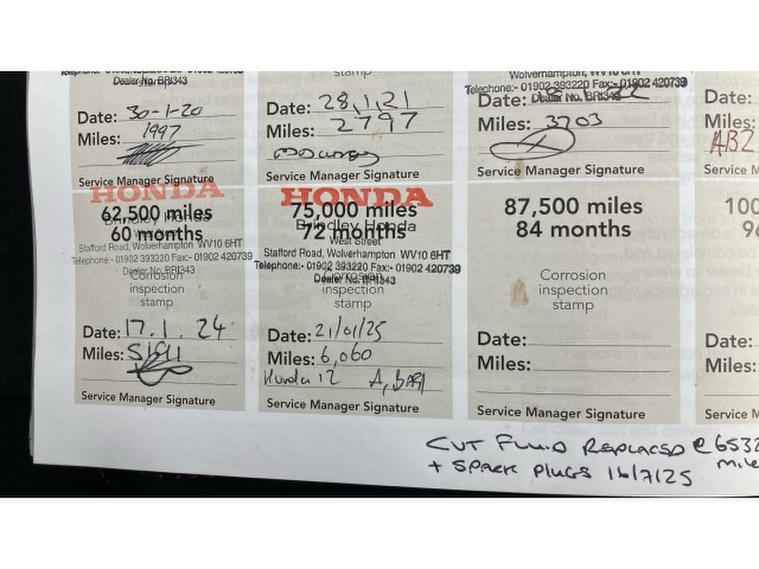 Dealer No. BRI343
stamp
Date: 30-1-20
Miles: 1997
Service Manager Signature
stamp
Date: 28,1,21
Miles: 2797
Service Manager Signature
Wolverhampton, WV10 6HT
Telephone:- 01902 393220 Fax:- 01902 420739
Dealer No. BRI343
Date:
Miles: 3703
Service Manager Signature
Date:
Miles:
AB2
Service M
HONDA
62,500 miles
60 months
Stafford Road, Wolverhampton WV10 6HT
Telephone:- 01902 393220 Fax:- 01902 420739
Dealer No. BRI343
Corrosion
inspection
stamp
Date: 17.1.24
Miles: 5191
Service Manager Signature
HONDA
75,000 miles
Brindley Honda
72 months
West Street
Stafford Road, Wolverhampton WV10 6HT
Telephone:- 01902 393220 Fax:- 01902 420739
Dealer No. BRI343
Corrosion
inspection
stamp
Date: 21/01/25
Miles: 6,060
Service Manager Signature
87,500 miles
84 months
Corrosion
inspection
stamp
Date:
Miles:
Service Manager Signature
100
96
Date:
Miles:
Service M
CVT FLUID REPLACED @ 6532
+ SPARK PLUGS 16/7/25 mile